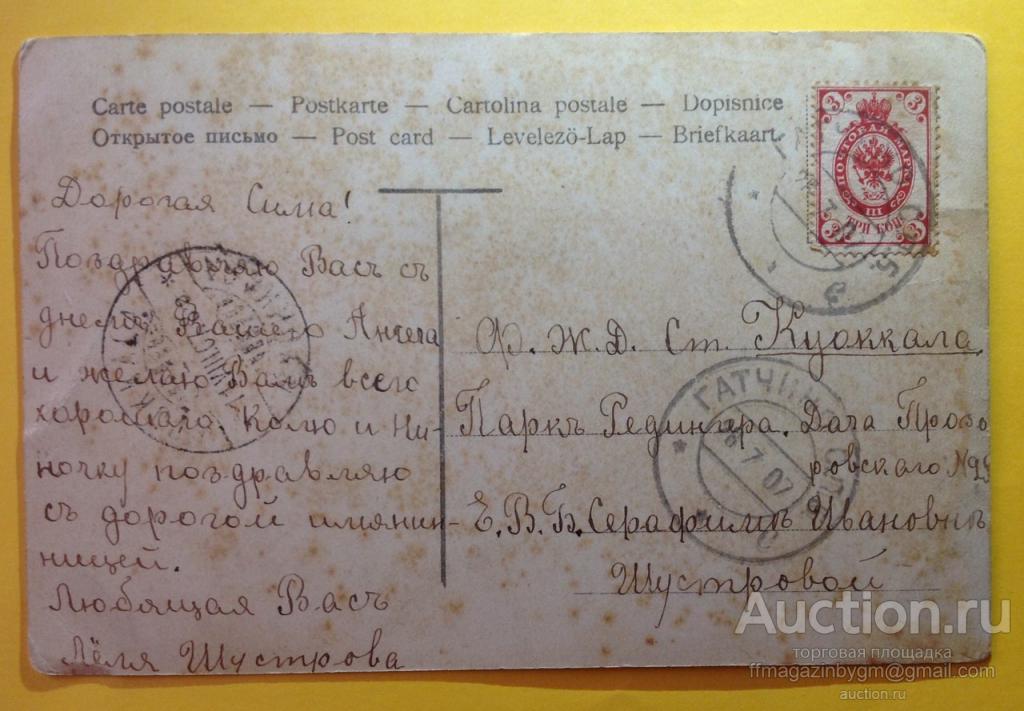 Carte postale — Postkarte — Cartolina postale — Dopisnice
Открытое письмо — Post card — Levelező-Lap — Briefkaart
3 3
ПОЧТОВАЯ МАРКА
III
ТРИ КОП.
3 3
Дорогая Сима!
Поздравляю Васъ съ
днемъ Вашего Ангела
и желаю Вамъ всего
хорошаго. Колю и Ни-
ночку поздравляю
съ дорогой имянин-
ницей.
Любящая Васъ
Лёля Шустрова
Ф. Ж. Д. Ст. Куоккала.
Паркъ Редингера. Дача Прозо
ровскаго №25
Е. В. Б. Серафимѣ Ивановнѣ
Шустровой
ГАТЧИНО
7 07
Auction.ru
торговая площадка
ffmagazinbygm@gmail.com
auction.ru